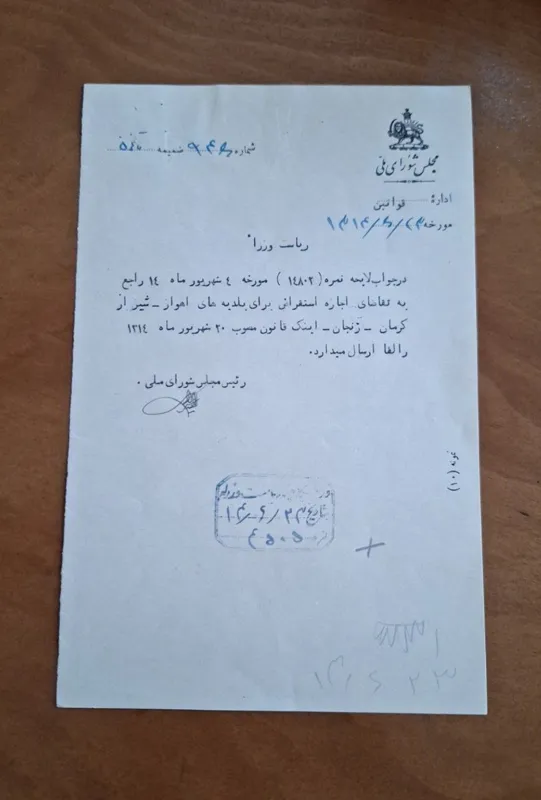 مجلس شورای ملی
شماره ضمیمه
اداره قوانین
مورخه ۱۳۱۴/۶/۲۳
ریاست وزراء
در جواب لایحه نمره (۱۴۸۰۲) مورخه ۴ شهریور ماه ۱۴ راجع
به تقاضای اجازه استقراض برای بلدیه های اهواز - شیراز
کرمان - زنجان - اینک قانون مصوب ۲۰ شهریور ماه ۱۳۱۴
را لفا ارسال میدارد.
رئیس مجلس شورای ملی .
نمونه (۱۰)
ریاست وزراء
بتاریخ ۱۴/۶/۲۳
۱۴ ۶ ۲۳